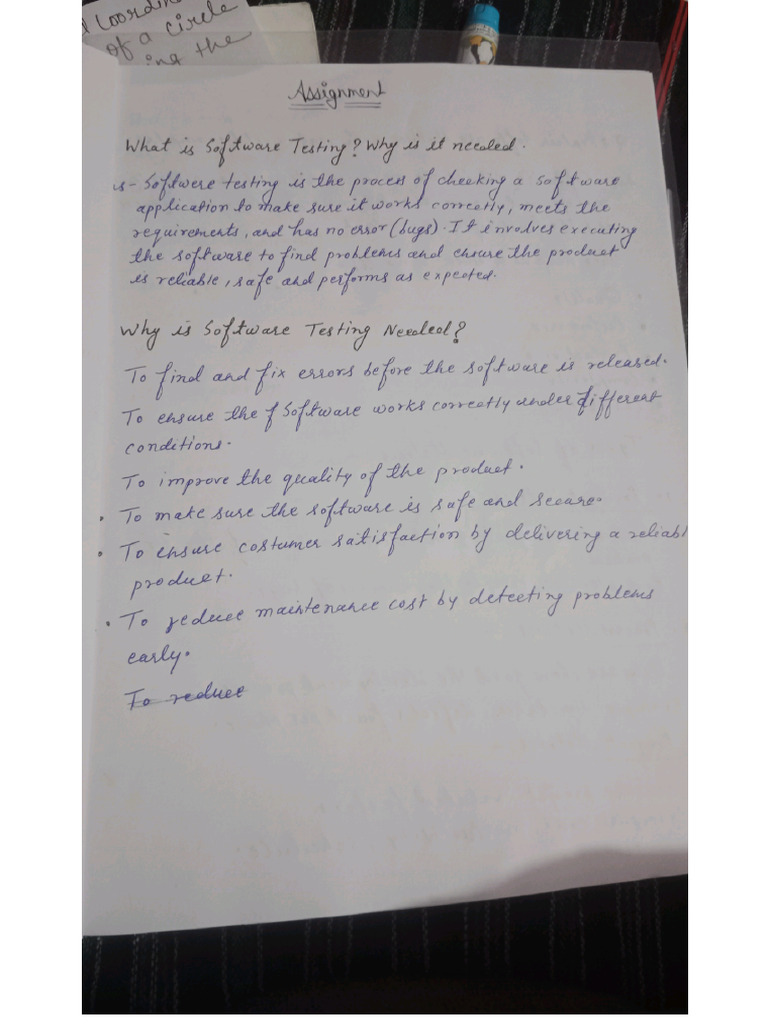 Coordin
of a circle
ing the
Assignment
What is Software Testing? Why is it needed.
s - Softwere testing is the process of checking a software
application to make sure it works correctly, meets the
requirements, and has no error (bugs). It involves executing
the software to find problems and ensure the product
is reliable, safe and performs as expected.
Why is Software Testing Needed?
To find and fix errors before the software is released.
To ensure the f Software works correctly under different
conditions.
To improve the quality of the product.
• To make sure the software is safe and secure.
• To ensure costumer satisfaction by delivering a reliabl
product.
• To reduce maintenance cost by detecting problems
early.
To reduce